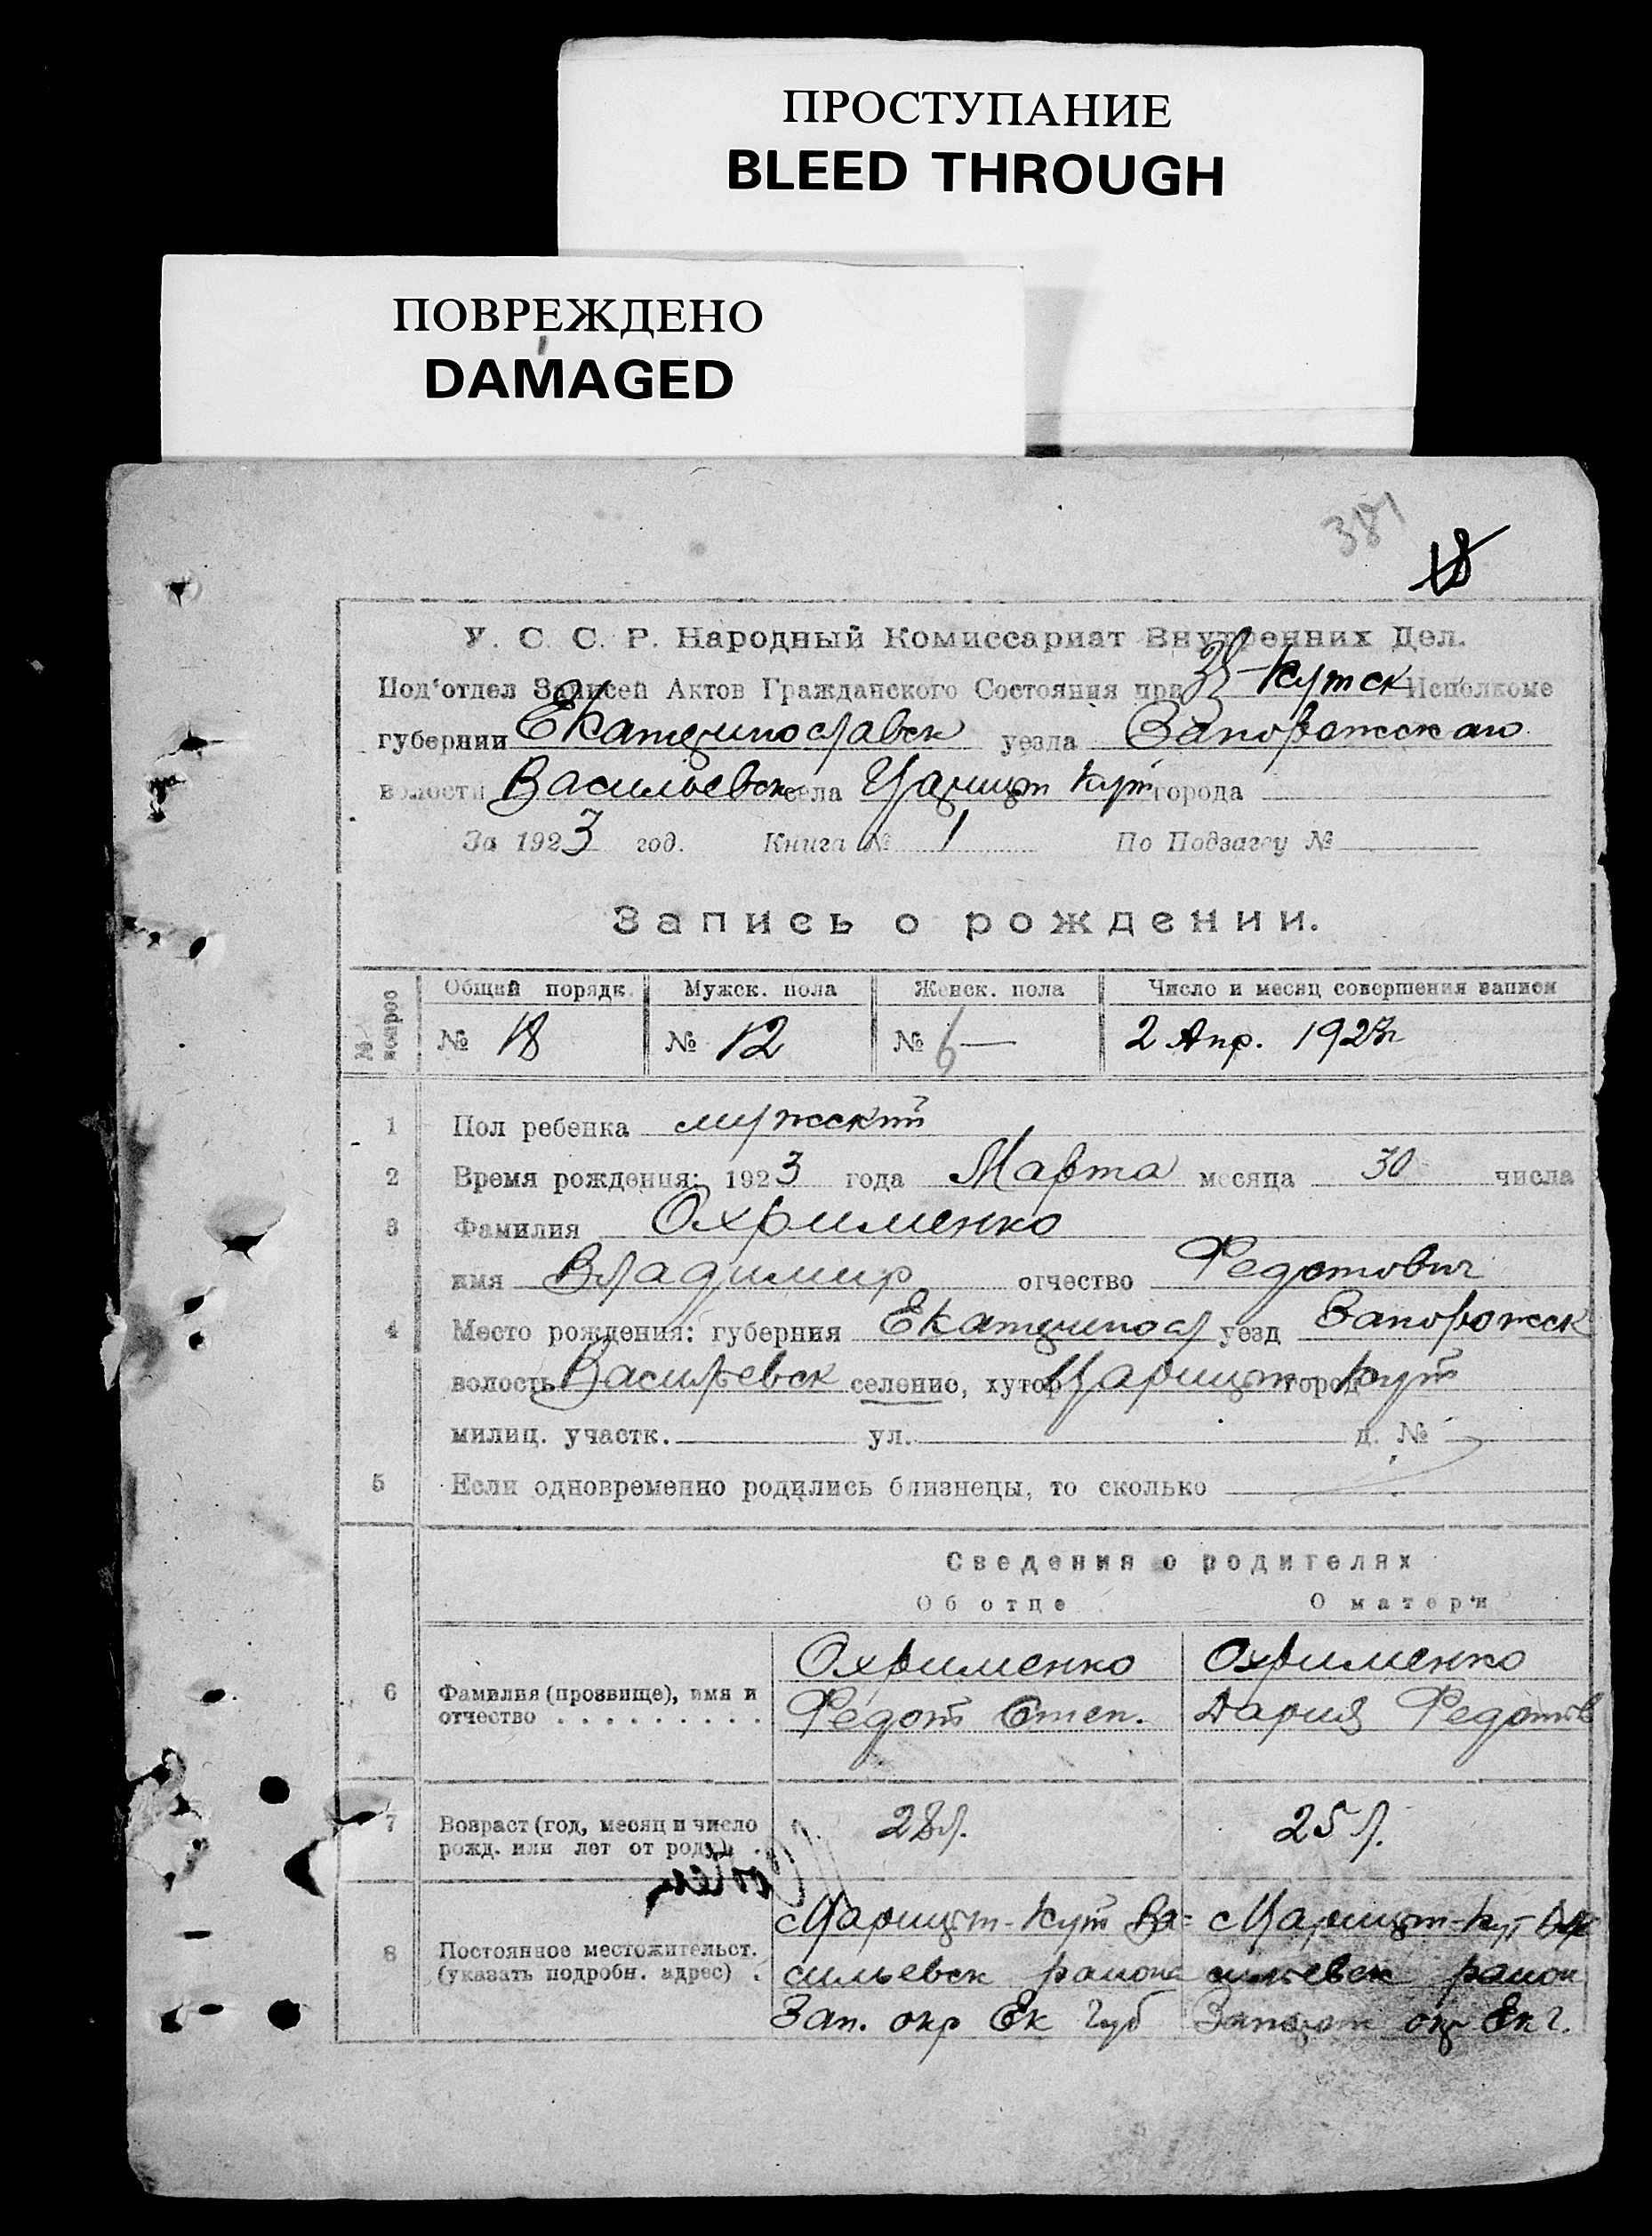 ПРОСТУПАНИЕ
BLEED THROUGH
ПОВРЕЖДЕНО
DAMAGED
381
18
У. С. С. Р. Народный Комиссариат Внутренних Дел.
Под'отдел Записей Актов Гражданского Состояния при Кутск Исполкоме
губернии Екатеринославск уезда Запорожскаго
волости Васильевск села Царицын Кут города
За 1923 год. Книга № 1 По Подзагсу №
Запись о рождении.
№ вопрос Общий порядк. Мужск. пола Женск. пола Число и месяц совершения записи
№ 18 № 12 № 6 — 2 Апр. 1923г
1 Пол ребенка мужский
2 Время рождения: 1923 года Марта месяца 30 числа
3 Фамилия Охрименко
имя Владимир отчество Федотович
4 Место рождения: губерния Екатериносл уезд Запорожск
волость Васильевск селение, хутор Царицын город Кут
милиц. участк. ул. д. №
5 Если одновременно родились близнецы, то сколько
Сведения о родителях
Об отце О матери
Охрименко Охрименко
6 Фамилия (прозвище), имя и отчество . . . . . . . . . Федот Степ. Дария Федотов
7 Возраст (год, месяц и число рожд. или лет от роду) . 28 л. 25 л.
Царицын-Кут Ва= Царицын-Кут Ва
8 Постоянное местожительст. (указать подробн. адрес) . сильевск района сильевск район
Зап. окр Ек Губ окр Ек г.